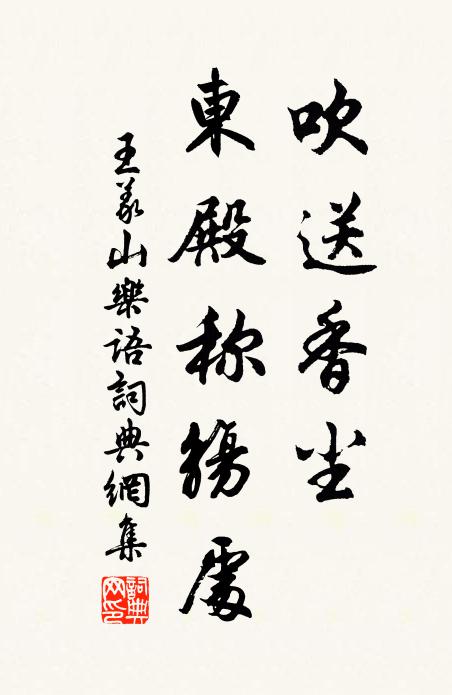 吹送香尘
東殿称觴處
王義山樂語詞典網集
詞典
网印